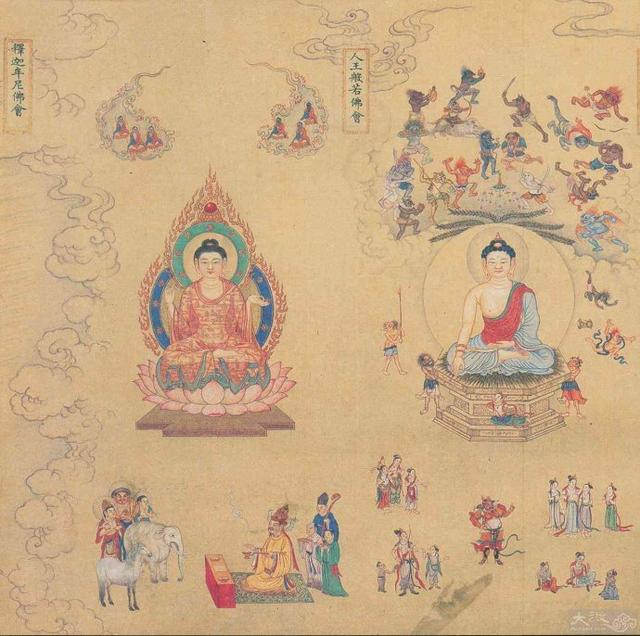 人王般若佛會
釋迦牟尼佛會